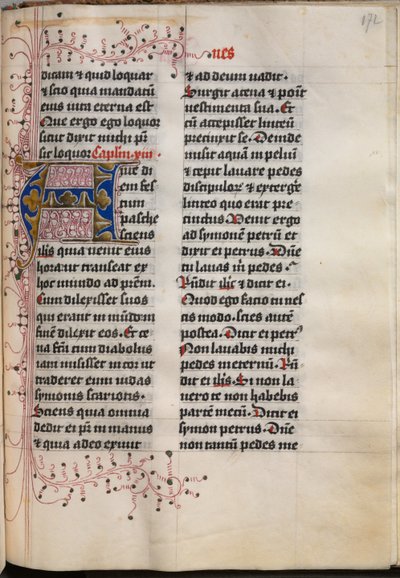 172
nes
dicam & quid loquar
& scio quia mandatū
eius uita eterna est
Que ergo ego loquor
sicut dixit michi pr̄
sic loquor Caplm.xiii.
Ante di
em fes
tum
pasche
sciens
ih̄s quia uenit eius
hora ut transeat ex
hoc mundo ad prēm.
Cum dilexisset suos
qui erant in mūdo in
finē dilexit eos. Et ce
na fc̄a cum diabolus
iam misisset in cor ut
traderet eum iudas
symonis scariotis.
Sciens quia omnia
dedit ei pr̄ in manus
& quia a deo exiuit
& ad deum uadit.
Surgit a cena & ponit
uestimenta sua. Et
cū accepisset linteū
precinxit se. Deinde
misit aquā in peluī
& cepit lauare pedes
discipuloꝝ & extergē
linteo quo erat pre
cinctus. Venit ergo
ad symonem petrū et
dixit ei petrus. Dn̄e
tu lauas m̄ pedes.
Rn̄dit ih̄s & dicit ei.
Quod ego facio tu nes
cis modo. scies autē
postea. Dicit ei petrꝰ
Non lauabis michi
pedes in eternū. Rn̄
dit ei ih̄s. Si non la
uero te non habebis
partē mecū. Dicit ei
symon petrus. Dn̄e
non tantū pedes me